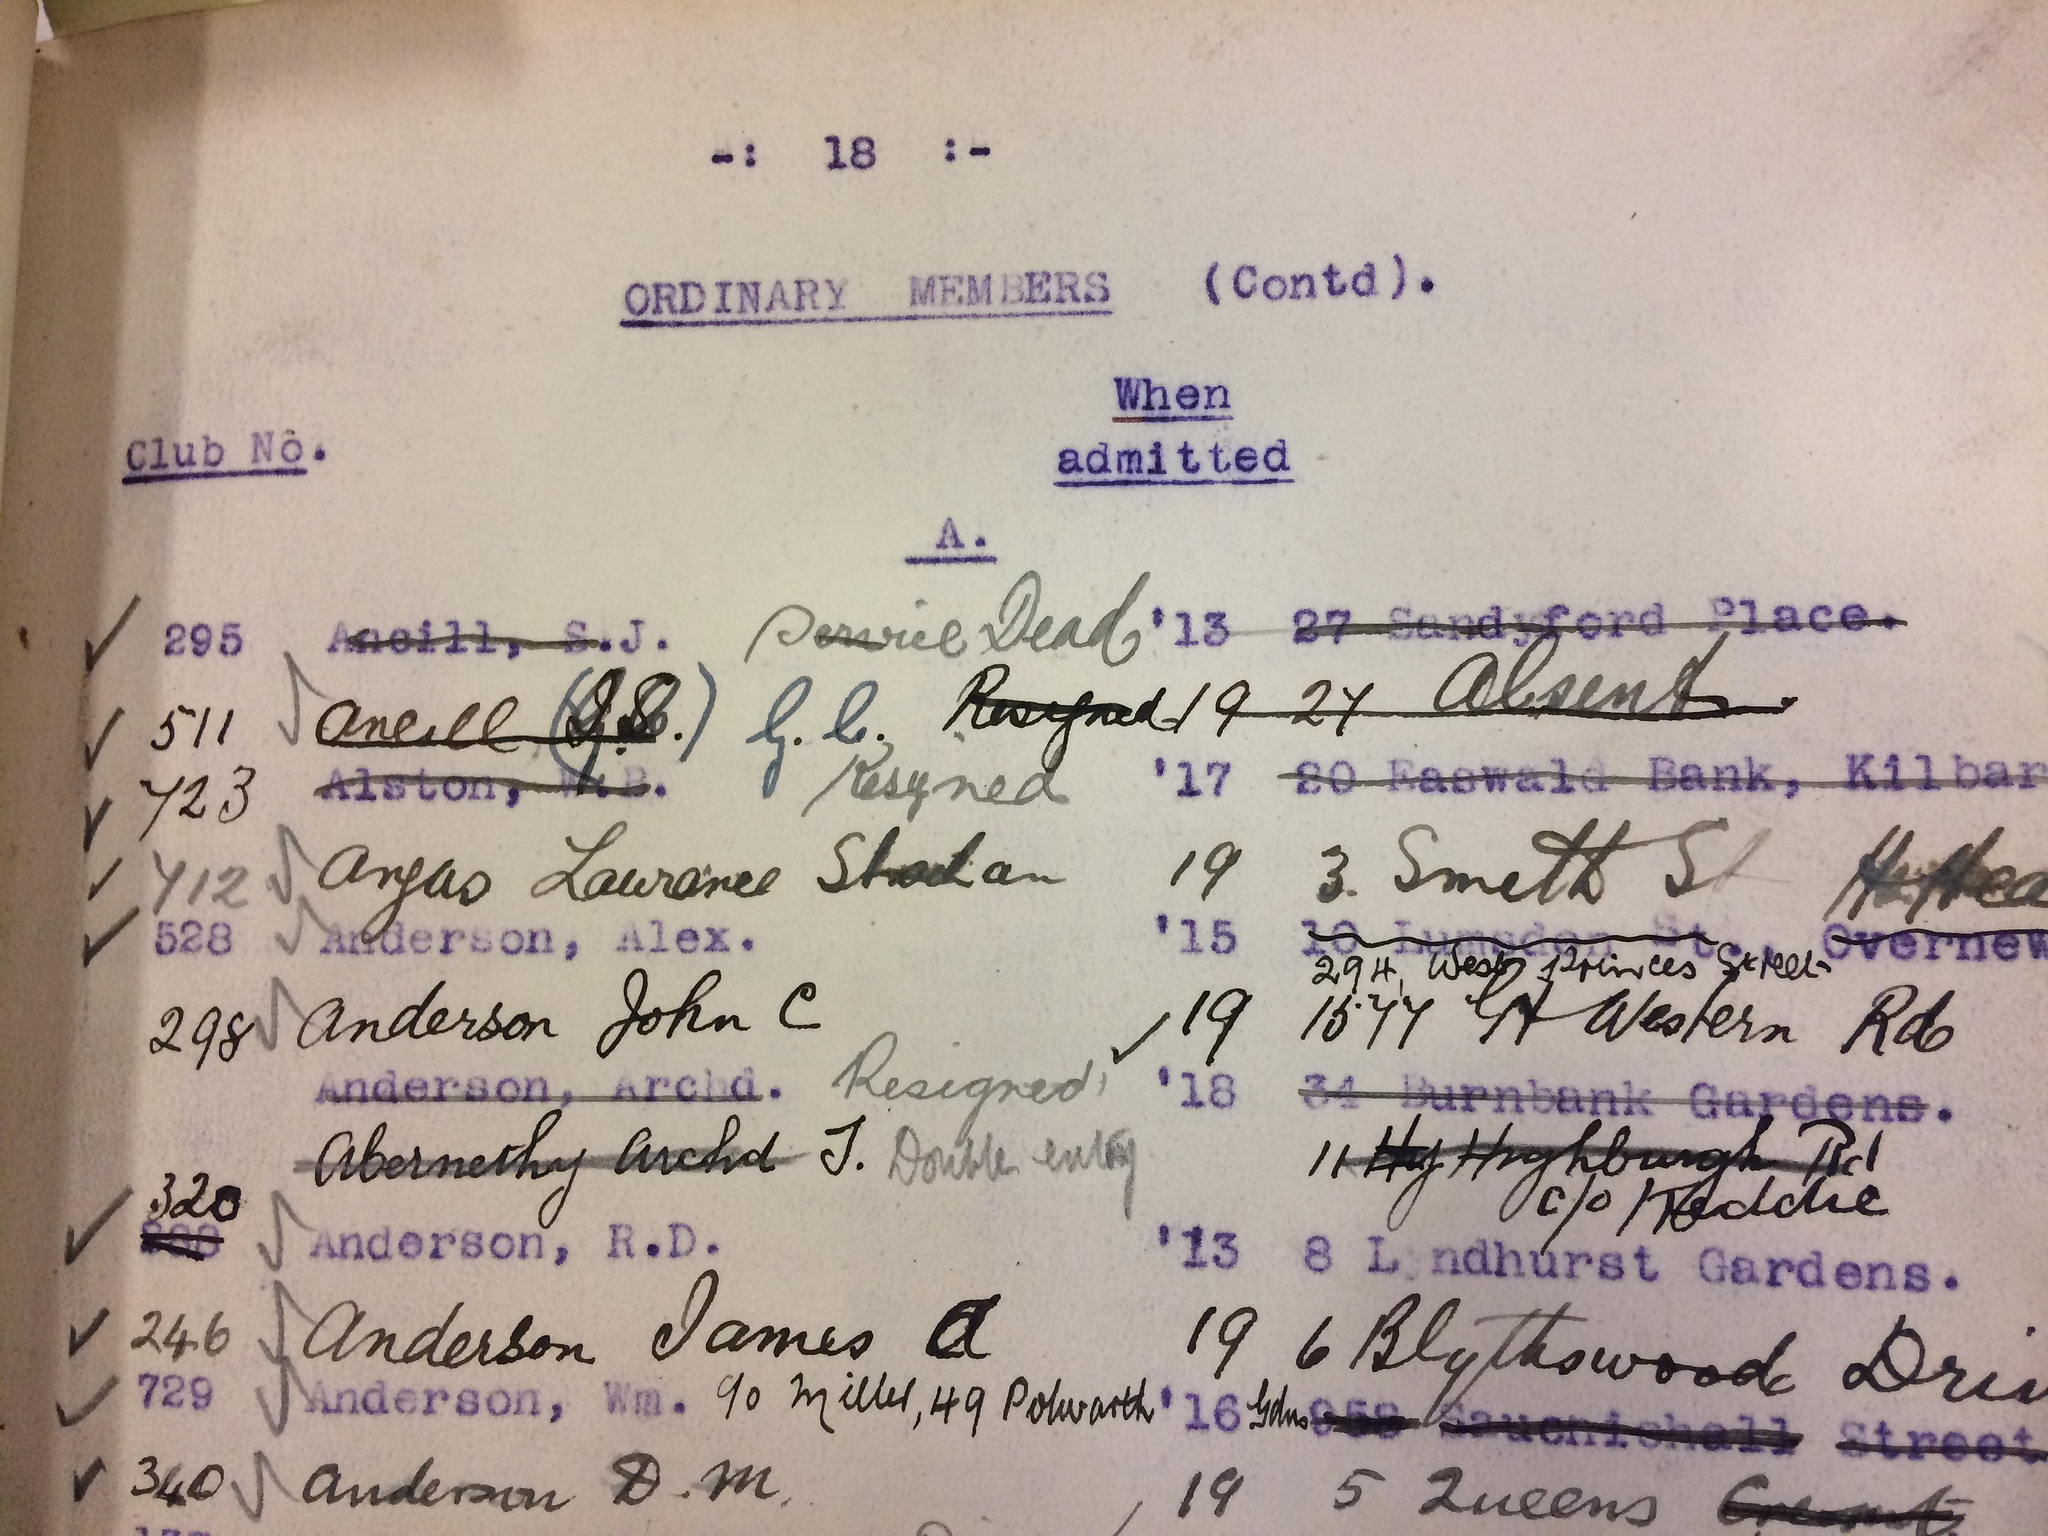 -: 18 :-
ORDINARY MEMBERS (Contd).
When
Club No. admitted
A.
295 Aneill, S.J. Service Dead '13 27 Sandyford Place.
511 Aneill G. C. Resigned 19 24 Absent
723 Alston, W.B. Resigned '17 20 Easwald Bank, Kilbar
712 Angus Lawrance 19 3. Smith St
528 Anderson, Alex. '15 10 Lumsden St., Overnew
294, West Princes Street
298 Anderson John C 19 1577 Gt Western Rd
Anderson, Archd. Resigned '18 34 Burnbank Gardens.
Abernethy Archd J. Double entry 11 Highburgh Rd
320 c/o Keddie
Anderson, R.D. '13 8 Lyndhurst Gardens.
246 Anderson James A 19 6 Blythswood Driv
729 Anderson, Wm. c/o Miller, 49 Polwarth '16 Gdns 958 Sauchiehall Street
340 Anderson D. M. 19 5 Queens Cresnt.